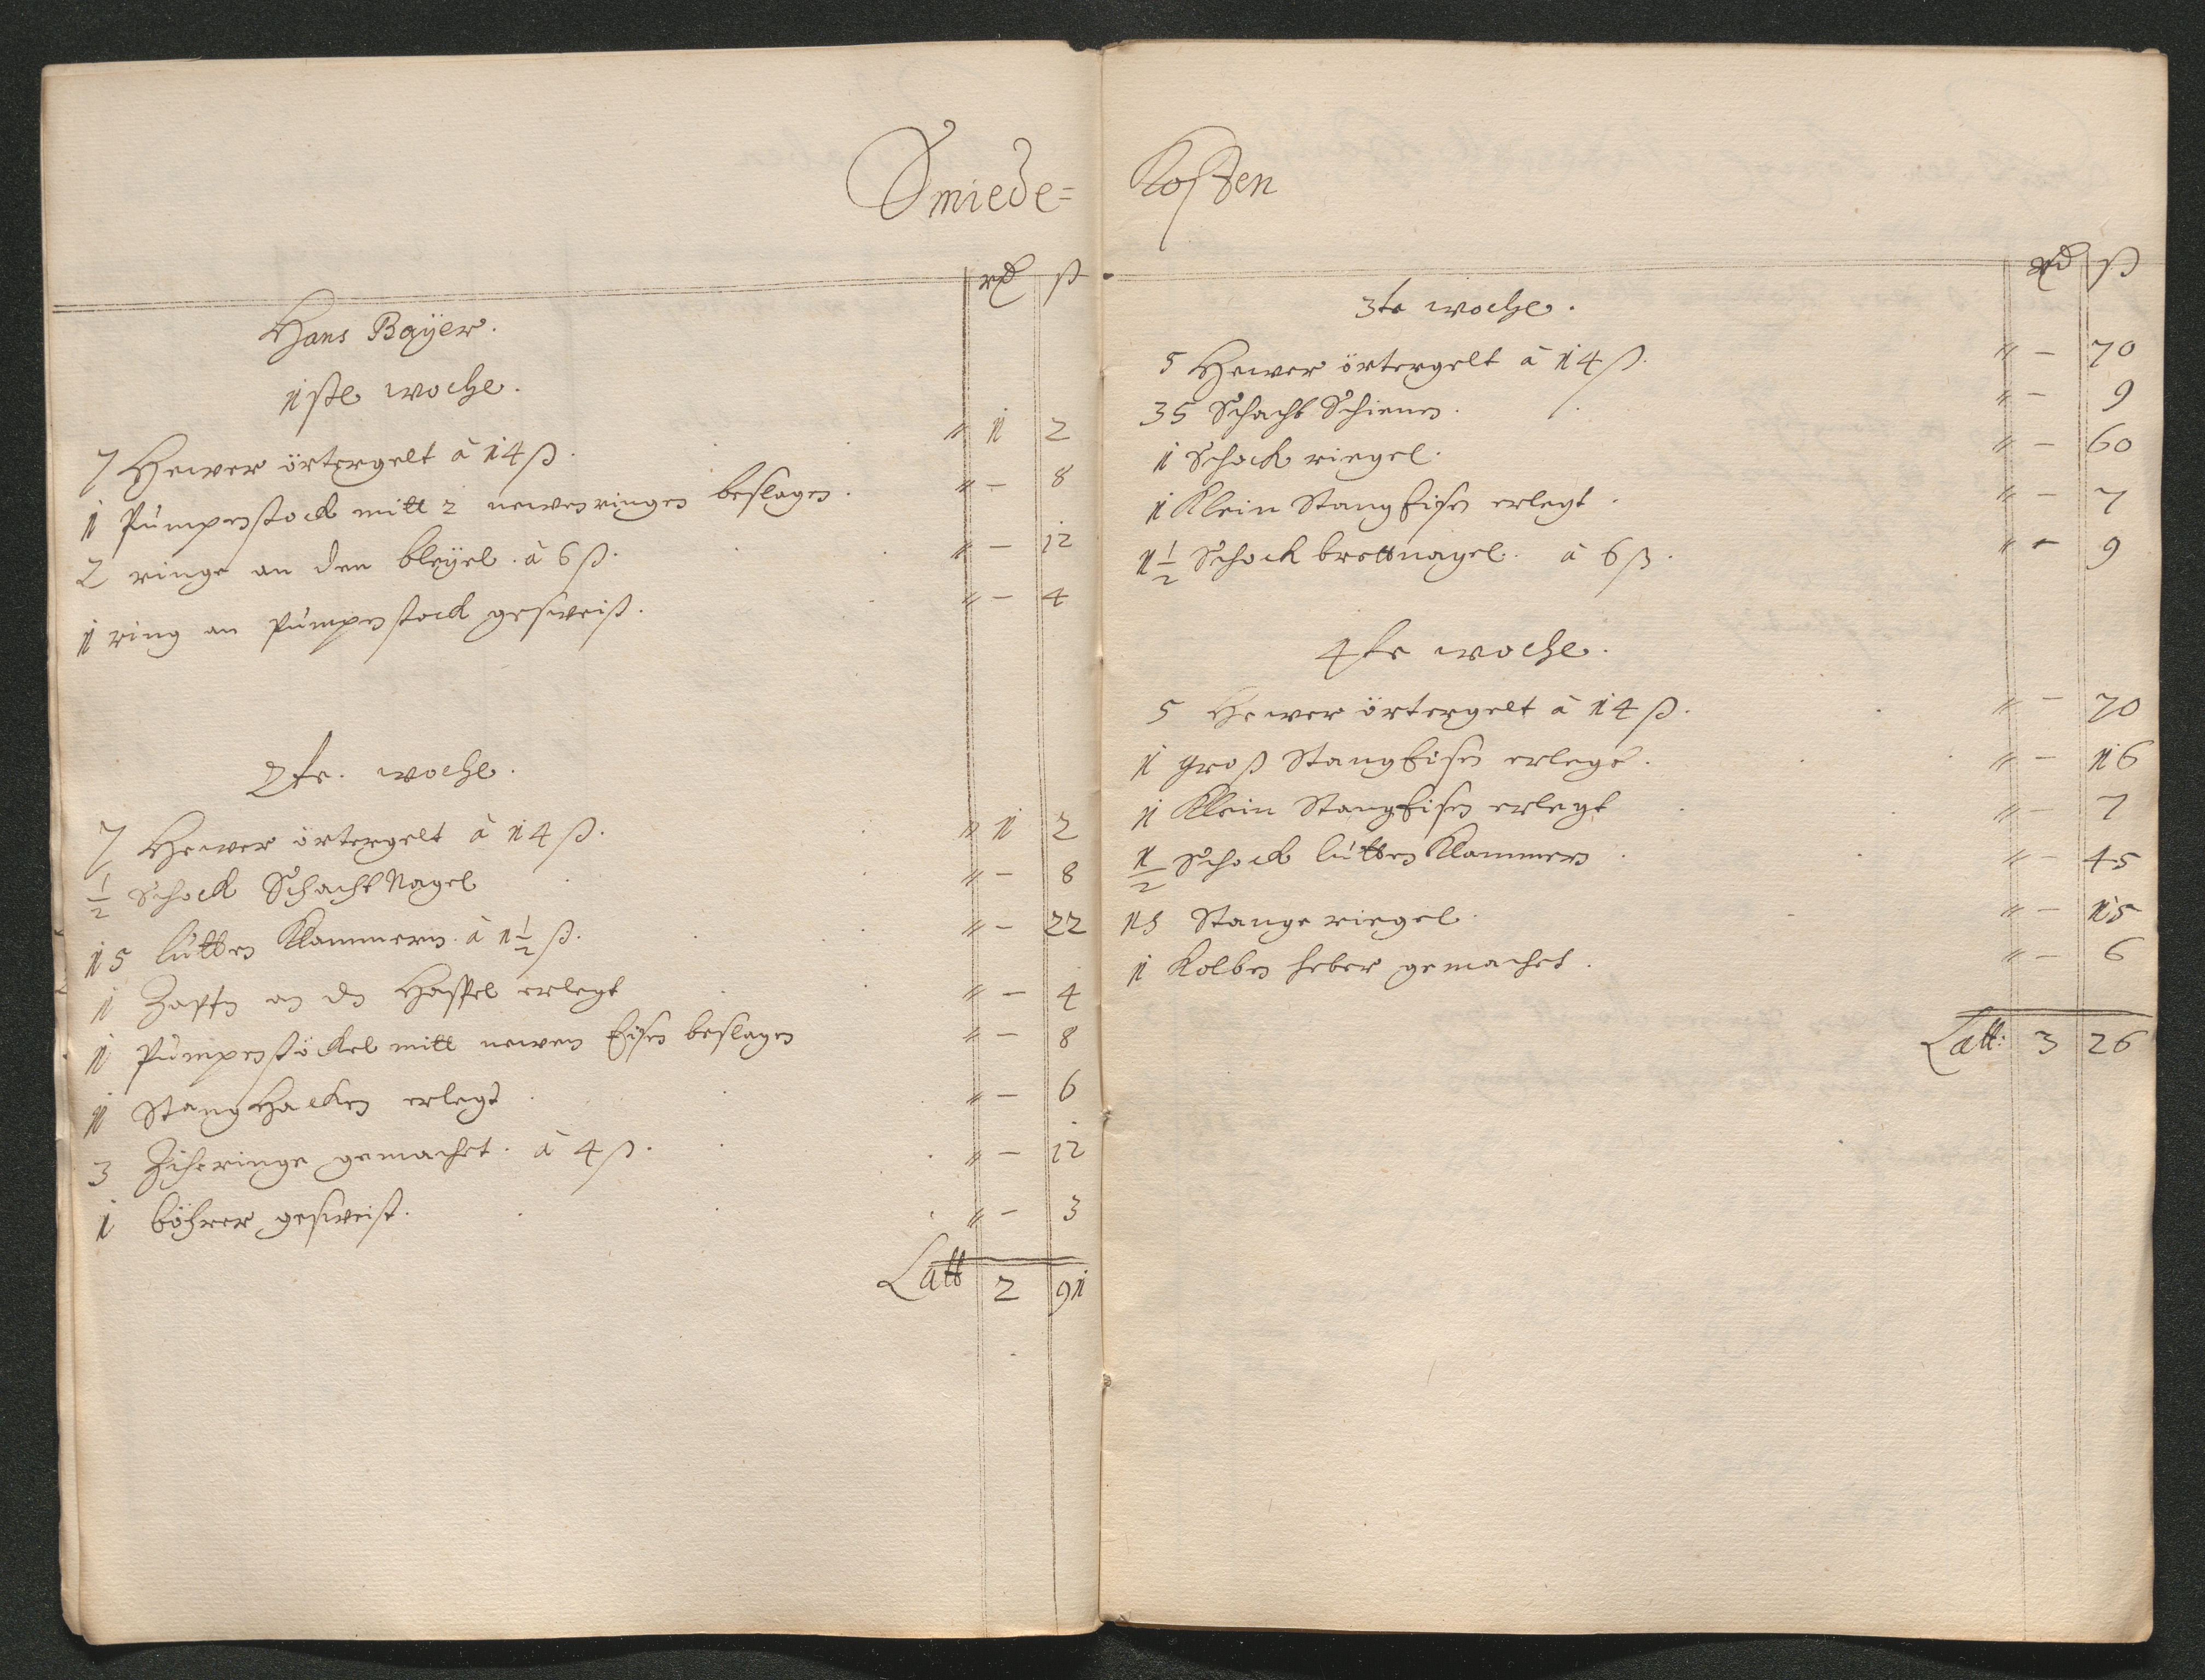 Smiede=
rd ß
Hans Bayer.
1ste woche.
7 Hewer örtergelt à 14 ß. " 1 2
1 Pumpenstock mitt 2 newen ringen beslagen. " — 8
2 ringe an den bleyel. à 6 ß. " — 12
1 ring an Pumpenstock gesweist. " — 4
2te. woche.
7 Hewer örtergelt à 14 ß. " 1 2
1/2 Schock Schacht Nagel " — 8
15 lutten Klammern. à 1 1/2 ß. " — 22
1 Zapfn an dn Haspel erlegt " — 4
1 Pumpenstöckel mitt newen Eisen beslagen " — 8
1 Stang Hacken erlegt " — 6
3 Ziheringe gemachet. à 4 ß. " — 12
1 böhrer gesweist. " — 3
Latt 2 91
Kosten
rd ß
3te woche.
5 Hewer örtergelt à 14 ß. " — 70
35 Schacht Schienen. " — 9
1 Schock riegel. " — 60
1 Klein Stang Eisen erlegt. " — 7
1 1/2 Schock brettnagel. à 6 ß. " — 9
4te woche.
5 Hewer örtergelt à 14 ß. " — 70
1 groß Stang Eisen erlegt. " — 16
1 Klein Stang Eisen erlegt " — 7
1/2 Schock lutten Klammern " — 45
15 Stange riegel. " — 15
1 Kolben heber gemachet. " — 6
Latt: 3 26